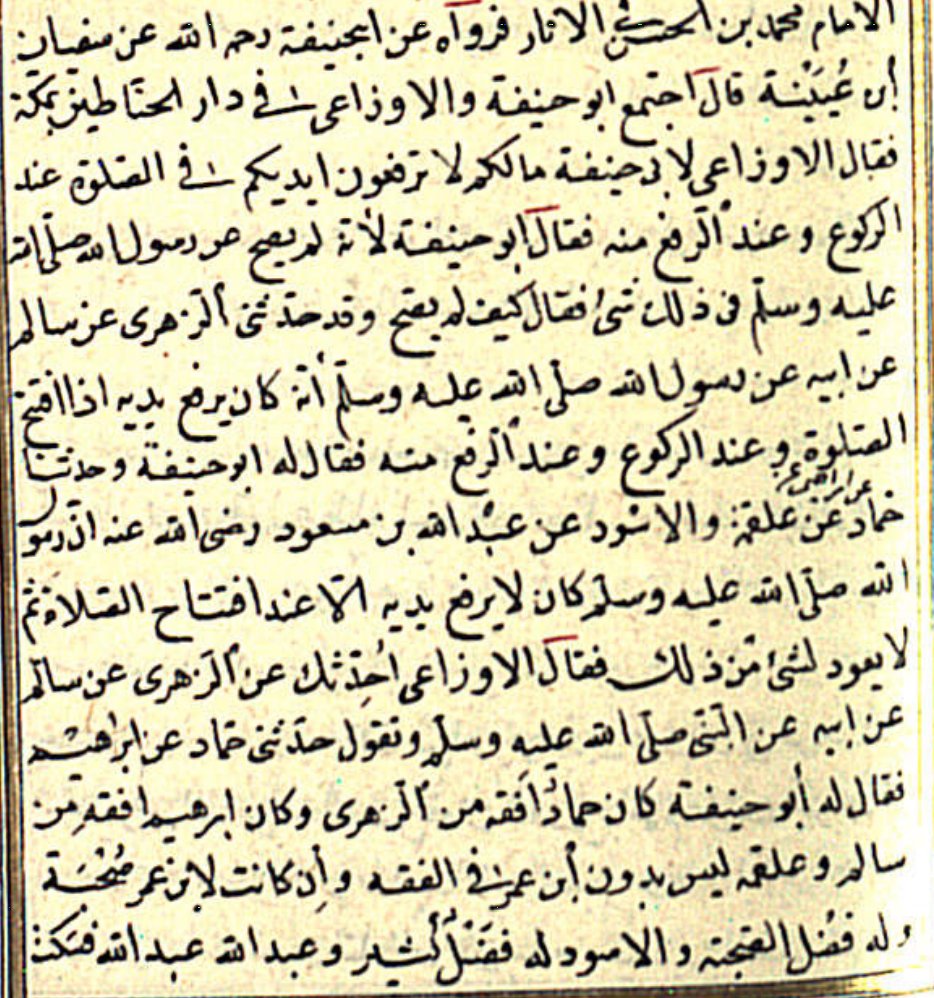 الامام محمد بن الحسن في الاثار فرواه عن ابيحنيفة رحمه الله عن سفيان
ابن عُيَيْنَة قال اجتمع ابو حنيفة والاوزاعى فى دار الحنّاطين بمكّة
فقال الاوزاعى لابى حنيفة مالكم لا ترفعون ايديكم فى الصّلوة عند
الركوع وعند الرّفع منه فقال ابو حنيفة لأنّه لم يصح عن رسول الله صلّى الله
عليه وسلّم فى ذلك شئ فقال كيف لم يصحّ وقد حدّثنى الزّهرى عن سالم
عن ابيه عن رسول الله صلّى الله عليه وسلّم أنّه كان يرفع يديه اذا افتتح
الصّلوة وعند الركوع وعند الرّفع منه فقال له ابو حنيفة وحدثنا
حمّاد عن ابراهيم عن علقمة والاسود عن عبد الله بن مسعود رضى الله عنه انّ رسول
الله صلّى الله عليه وسلّم كان لا يرفع يديه الّا عند افتتاح الصّلاة ثمّ
لا يعود لشئ مّن ذلك فقال الاوزاعى اُحدّثك عن الزّهرى عن سالم
عن ابيه عن النّبى صلّى الله عليه وسلّم وتقول حدّثنى حمّاد عن ابراهيم
فقال له أبو حنيفة كان حمادٌ افقه من الزّهرى وكان ابرهيم افقه مّن
سالم وعلقمة ليس بدون أبن عمر فى الفقه وأِن كانت لابن عمر صُحْبَة
وله فضل الصّحبة والاسود له فَضْلٌ كثير وعبد الله عبد الله فسكت